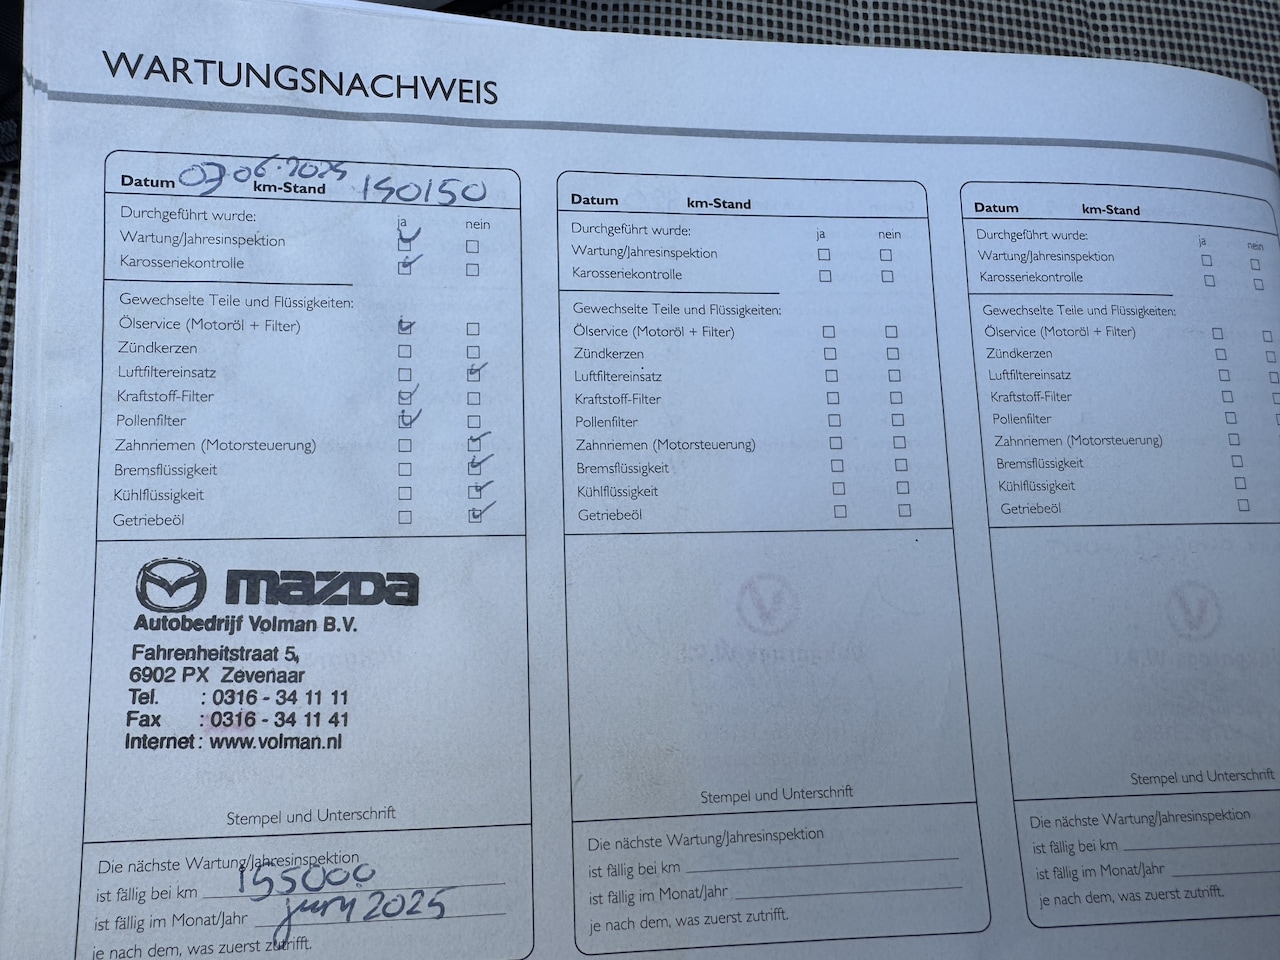 WARTUNGSNACHWEIS
Datum 07.06.2024 km-Stand 150150
Durchgeführt wurde: ja nein
Wartung/Jahresinspektion
Karosseriekontrolle
Gewechselte Teile und Flüssigkeiten:
Ölservice (Motoröl + Filter)
Zündkerzen
Luftfiltereinsatz
Kraftstoff-Filter
Pollenfilter
Zahnriemen (Motorsteuerung)
Bremsflüssigkeit
Kühlflüssigkeit
Getriebeöl
mazda
Autobedrijf Volman B.V.
Fahrenheitstraat 5,
6902 PX Zevenaar
Tel. : 0316 - 34 11 11
Fax : 0316 - 34 11 41
Internet : www.volman.nl
Stempel und Unterschrift
Die nächste Wartung/Jahresinspektion
ist fällig bei km 155000
ist fällig im Monat/Jahr juni 2025
je nach dem, was zuerst zutrifft.
Datum km-Stand
Durchgeführt wurde: ja nein
Wartung/Jahresinspektion
Karosseriekontrolle
Gewechselte Teile und Flüssigkeiten:
Ölservice (Motoröl + Filter)
Zündkerzen
Luftfiltereinsatz
Kraftstoff-Filter
Pollenfilter
Zahnriemen (Motorsteuerung)
Bremsflüssigkeit
Kühlflüssigkeit
Getriebeöl
Stempel und Unterschrift
Die nächste Wartung/Jahresinspektion
ist fällig bei km
ist fällig im Monat/Jahr
je nach dem, was zuerst zutrifft.
Datum km-Stand
Durchgeführt wurde: ja nein
Wartung/Jahresinspektion
Karosseriekontrolle
Gewechselte Teile und Flüssigkeiten:
Ölservice (Motoröl + Filter)
Zündkerzen
Luftfiltereinsatz
Kraftstoff-Filter
Pollenfilter
Zahnriemen (Motorsteuerung)
Bremsflüssigkeit
Kühlflüssigkeit
Getriebeöl
Stempel und Unterschrift
Die nächste Wartung/Jahresinspektion
ist fällig bei km
ist fällig im Monat/Jahr
je nach dem, was zuerst zutrifft.